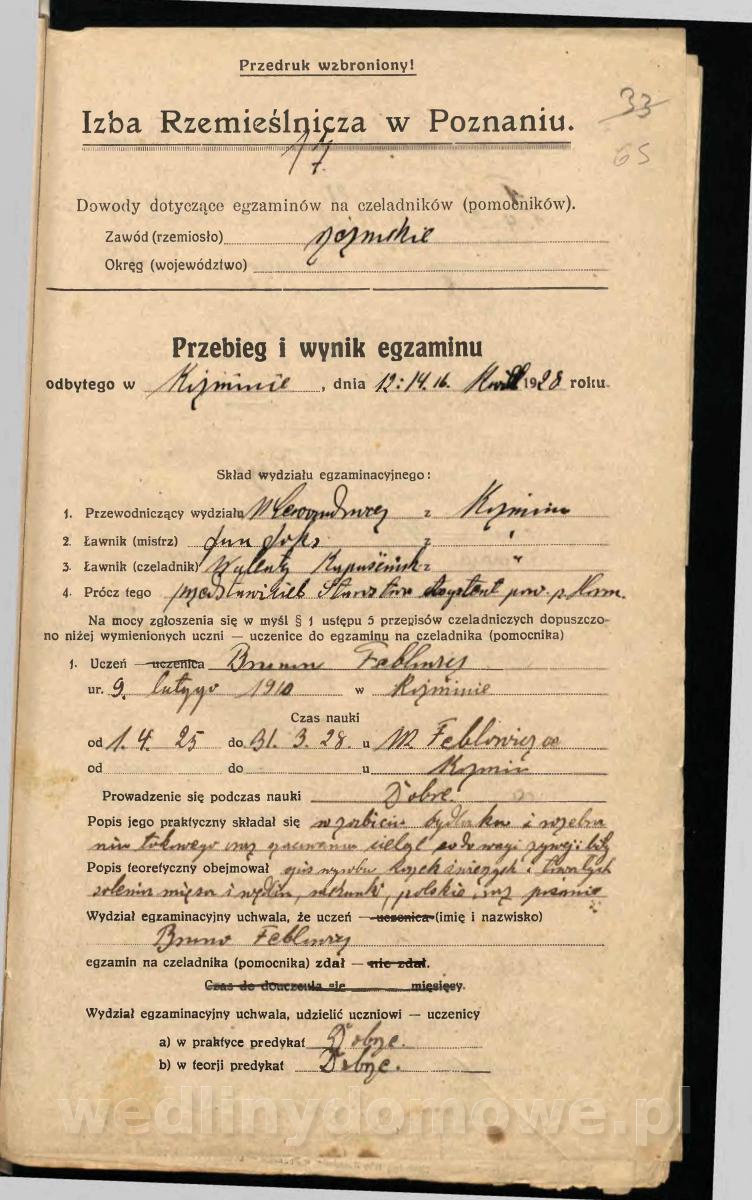 Przedruk wzbroniony!
33
Izba Rzemieślnicza w Poznaniu.
65
17.
Dowody dotyczące egzaminów na czeladników (pomocników).
Zawód (rzemiosło)
Okręg (województwo)
Przebieg i wynik egzaminu
odbytego w Koźminie, dnia 12:14.16. 1928 roku.
Skład wydziału egzaminacyjnego:
1. Przewodniczący wydziału z Koźmina
2. Ławnik (mistrz) Jan z "
3. Ławnik (czeladnik) Walenty z "
4. Prócz tego przedstawiciel Starostwa asystent pow. p.
Na mocy zgłoszenia się w myśl § 1 ustępu 5 przepisów czeladniczych dopuszczo-
no niżej wymienionych uczni — uczenice do egzaminu na czeladnika (pomocnika)
1. Uczeń — uczenica Bruno
ur. 9. lutego 1910 w Koźminie
Czas nauki
od 1. 4. 25 do 31. 3. 28. u W.
od do u Koźmin
Prowadzenie się podczas nauki Dobre.
Popis jego praktyczny składał się w zabiciu i
żywej
Popis teoretyczny obejmował opis wyrobu świeżych i trwałych
solenia mięsa i wędlin, rachunki, polskie, oraz pisanie
Wydział egzaminacyjny uchwala, że uczeń — uczenica (imię i nazwisko)
Bruno
egzamin na czeladnika (pomocnika) zdał — nie zdał.
Czas do douczenia się miesięcy.
Wydział egzaminacyjny uchwala, udzielić uczniowi — uczenicy
a) w praktyce predykat Dobrze.
b) w teorji predykat Dobrze.
wedlinydomowe.pl